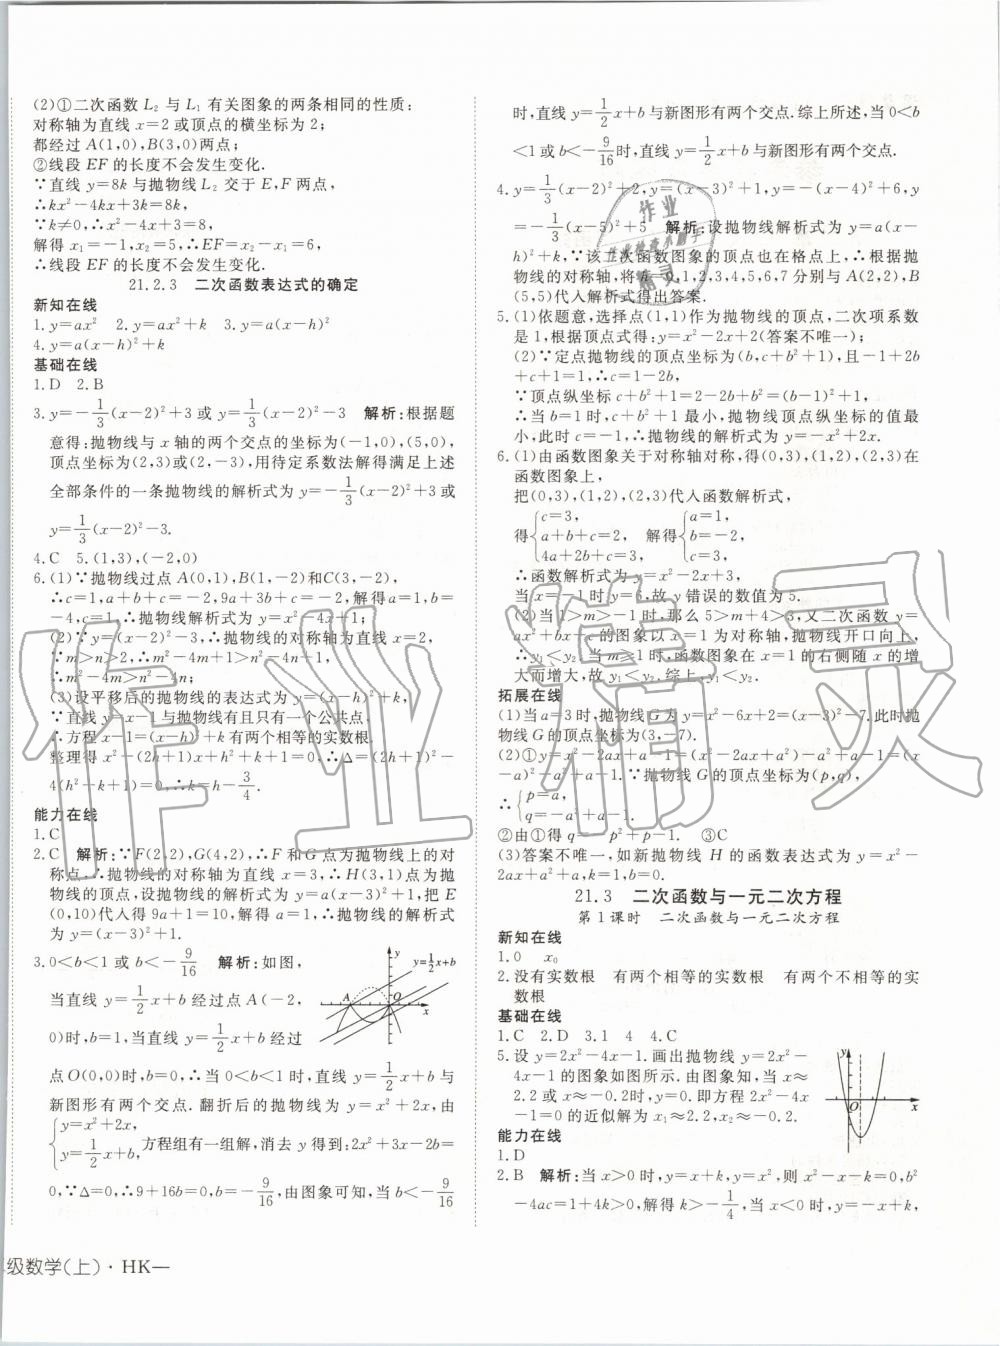 (2)①二次函数 L₂ 与 L₁ 有关图象的两条相同的性质:
对称轴为直线 x=2 或顶点的横坐标为 2;
都经过 A(1,0),B(3,0)两点;
②线段 EF 的长度不会发生变化.
∵直线 y=8k 与抛物线 L₂ 交于 E,F 两点,
∴kx²-4kx+3k=8k,
∵k≠0,∴x²-4x+3=8,
解得 x₁=-1,x₂=5,∴EF=x₂-x₁=6,
∴线段 EF 的长度不会发生变化.
21.2.3 二次函数表达式的确定
新知在线
1.y=ax² 2.y=ax²+k 3.y=a(x-h)²
4.y=a(x-h)²+k
基础在线
1.D 2.B
3.y=-1/3(x-2)²+3 或 y=1/3(x-2)²-3 解析:根据题
意得:抛物线与 x 轴的两个交点的坐标为(-1,0),(5,0),
顶点坐标为(2,3)或(2,-3),用待定系数法解得满足上述
全部条件的一条抛物线的解析式为 y=-1/3(x-2)²+3 或
y=1/3(x-2)²-3.
4.C 5.(1,3),(-2,0)
6.(1)∵抛物线过点 A(0,1),B(1,-2)和C(3,-2),
∴c=1,a+b+c=-2,9a+3b+c=-2,解得a=1,b=
-4,c=1,∴抛物线解析式为 y=x²-4x+1;
(2)∵y=(x-2)²-3,∴抛物线的对称轴为直线 x=2,
∵m>n>2,∴m²-4m+1>n²-4n+1,
∴m²-4m>n²-4n;
(3)设平移后的抛物线的表达式为 y=(x-h)²+k,
∵直线 y=x-1与抛物线有且只有一个公共点,
∴方程 x-1=(x-h)²+k 有两个相等的实数根.
整理得 x²-(2h+1)x+h²+k+1=0,∴Δ=(2h+1)²-
4(h²+k+1)=0,∴k=h-3/4.
能力在线
1.C
2.C 解析:∵F(2,2),G(4,2),∴F 和 G 点为抛物线上的对
称点,∴抛物线的对称轴为直线 x=3,∴H(3,1)点为抛
物线的顶点,设抛物线的解析式为 y=a(x-3)²+1,把 E
(0,10)代入得 9a+1=10,解得 a=1,∴抛物线的解析式
为 y=(x-3)²+1.
3.0<b<1 或 b<-9/16 解析:如图,
y=1/2x+b
y
A
O
x
当直线 y=1/2x+b 经过点 A(-2,
0)时,b=1;当直线 y=1/2x+b 经过
点 O(0,0)时,b=0,∴当 0<b<1时,直线 y=1/2x+b 与
新图形有两个交点. 翻折后的抛物线为 y=x²+2x,由
{y=x²+2x,
y=1/2x+b,方程组有一组解,消去 y 得到:2x²+3x-2b=
0,∵Δ=0,∴9+16b=0,b=-9/16,由图象可知,当 b<-9/16
时,直线 y=1/2x+b 与新图形有两个交点.综上所述,当 0<b
<1或 b<-9/16时,直线 y=1/2x+b 与新图形有两个交点.
4.y=1/3(x-2)²+2,y=(x-3)²+1,y=-(x-4)²+6,y
=-1/3(x-5)²+5 解析:设抛物线解析式为 y=a(x-
h)²+k,∵该二次函数图象的顶点也在格点上,∴根据抛
物线的对称轴,将 h=0,1,2,3,4,5,6,7 分别与 A(2,2),B
(5,5)代入解析式得出答案.
5.(1)依题意,选择点(1,1)作为抛物线的顶点,二次项系数
是 1,根据顶点式得:y=x²-2x+2(答案不唯一);
(2)∵定点抛物线的顶点坐标为(b,c+b²+1),且-1+2b
+c+1=1,∴c=1-2b,
∵顶点纵坐标 c+b²+1=2-2b+b²=(b-1)²+1,
∴当 b=1 时,c+b²+1 最小,抛物线顶点纵坐标的值最
小,此时 c=-1,∴抛物线的解析式为 y=-x²+2x.
6.(1)由函数图象关于对称轴对称,得(0,3),(1,2),(2,3)在
函数图象上,
把(0,3),(1,2),(2,3)代入函数解析式,
得{c=3, a+b+c=2, 4a+2b+c=3; 解得{a=1, b=-2, c=3.
∴函数解析式为 y=x²-2x+3;
当 x=-1 时,y=6,故 y 错误的数值为 5.
(2)当 1>m>-1 时,那么 5>m+4>3,又二次函数 y=
ax²+bx+c 的图象以 x=1 为对称轴,抛物线开口向上,
∴y₁<y₂.当 m>1 时,函数图象在 x=1 的右侧随 x 的增
大而增大,故 y₁<y₂.综上,y₁<y₂.
拓展在线
(1)当 a=3 时,抛物线 G 为 y=x²-6x+2=(x-3)²-7.此时抛
物线 G 的顶点坐标为(3,-7).
(2)①y=x²-2ax+a-1=(x²-2ax+a²)-a²+a-1=(x
-a)²-a²+a-1.∵抛物线 G 的顶点坐标为(p,q),
∴{p=a, q=-a²+a-1.
②由①得 q=-p²+p-1. ③C
(3)答案不唯一,如新抛物线 H 的函数表达式为 y=x²-
2ax+a²+a(a≠0).
21.3 二次函数与一元二次方程
第1课时 二次函数与一元二次方程
新知在线
1.0 x₀
2.没有实数根 有两个相等的实数根 有两个不相等的实
数根
基础在线
1.C 2.D 3.1 4 4.C
5.设 y=2x²-4x-1.画出抛物线 y=2x²-
4x-1 的图象如图所示.由图象知,当 x≈
2.2 或 x≈-0.2 时,y=0.即方程 2x²-4x
-1=0 的近似解为 x₁≈2.2,x₂≈-0.2.
y
O
x
能力在线
1.D
2.B 解析:当 x>0 时,y=kx-1,y=x²,则 x²-kx+1=0,b²
-4ac=1+4k>0,解得 k>-1/4,当 x<0 时,y=-x²,
级数学(上)·HK—
作业精灵
作业
精灵